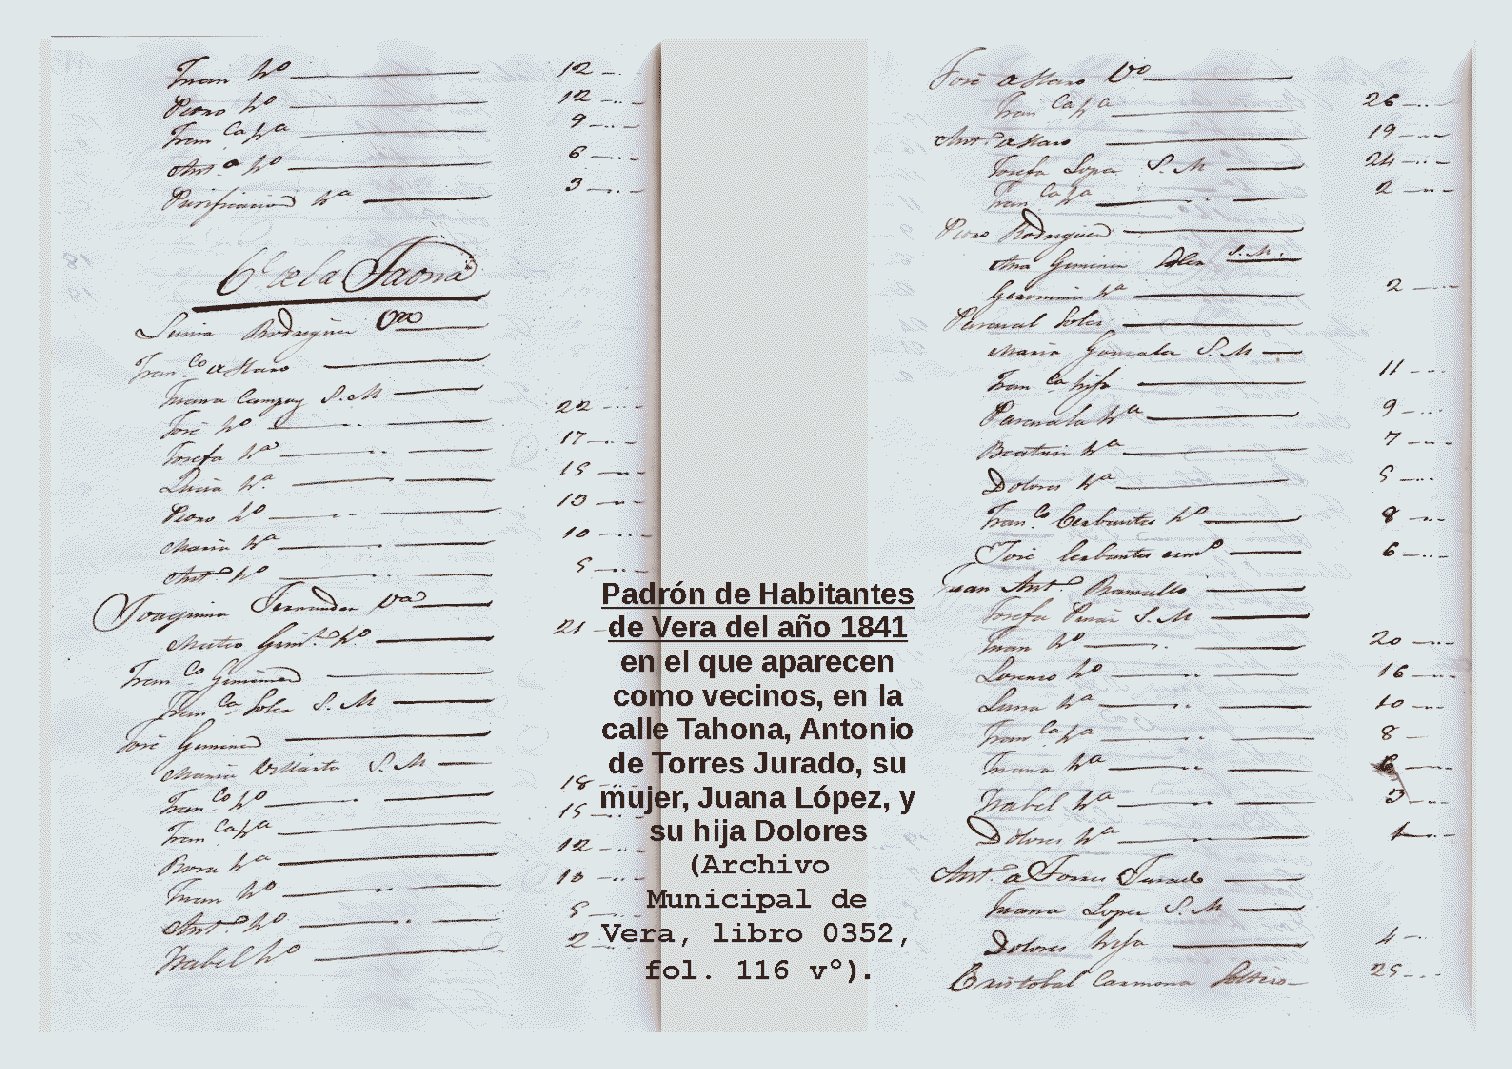 Juan hº 12
Pedro hº 12
Franca hª 9
Antº hº 6
Purificacion hª 3
Cº de la Taona
Rodriguez
Franco a Haro
Juana Campoy S. M
José hº 22
Josefa hª 17
Lucia hª 15
Pedro hº 13
Maria hª 10
Antº hº 5
Joaquina Fernandez Vª
Mateo Gimz hº 21
Franco Gimenez
Franca Soler S. M
José Gimenez
Maria S. M
Franco hº 18
Franca hª 15
Rosa hª 12
Juan hº 10
Antº hº 5
Isabel hª 2
Padrón de Habitantes
de Vera del año 1841
en el que aparecen
como vecinos, en la
calle Tahona, Antonio
de Torres Jurado, su
mujer, Juana López, y
su hija Dolores
(Archivo
Municipal de
Vera, libro 0352,
fol. 116 vº).
José a Haro Vº
Franca hª 26
Antº a Haro 19
Josefa Lopez S. M 24
Franca hª 2
Pedro Rodriguez
Ana Gimenez Soler S. M.
Geronima hª 2
Pascual Soler
Maria Gonzalez S. M
Franca hija 11
Pascuala hª 9
Beatriz hª 7
Dolores hª 5
Franco Cerbantes hº 8
José Cerbantes 6
Juan Antº Ramallo
Josefa S. M
Juan hº 20
Lorenzo hº 16
Luisa hª 10
Franca hª 8
Juana hª 6
Isabel hª 3
Dolores hª 1
Antº a Torres Jurado
Juana Lopez S. M
Dolores hija 4
Cristobal Carmona Soltero 25